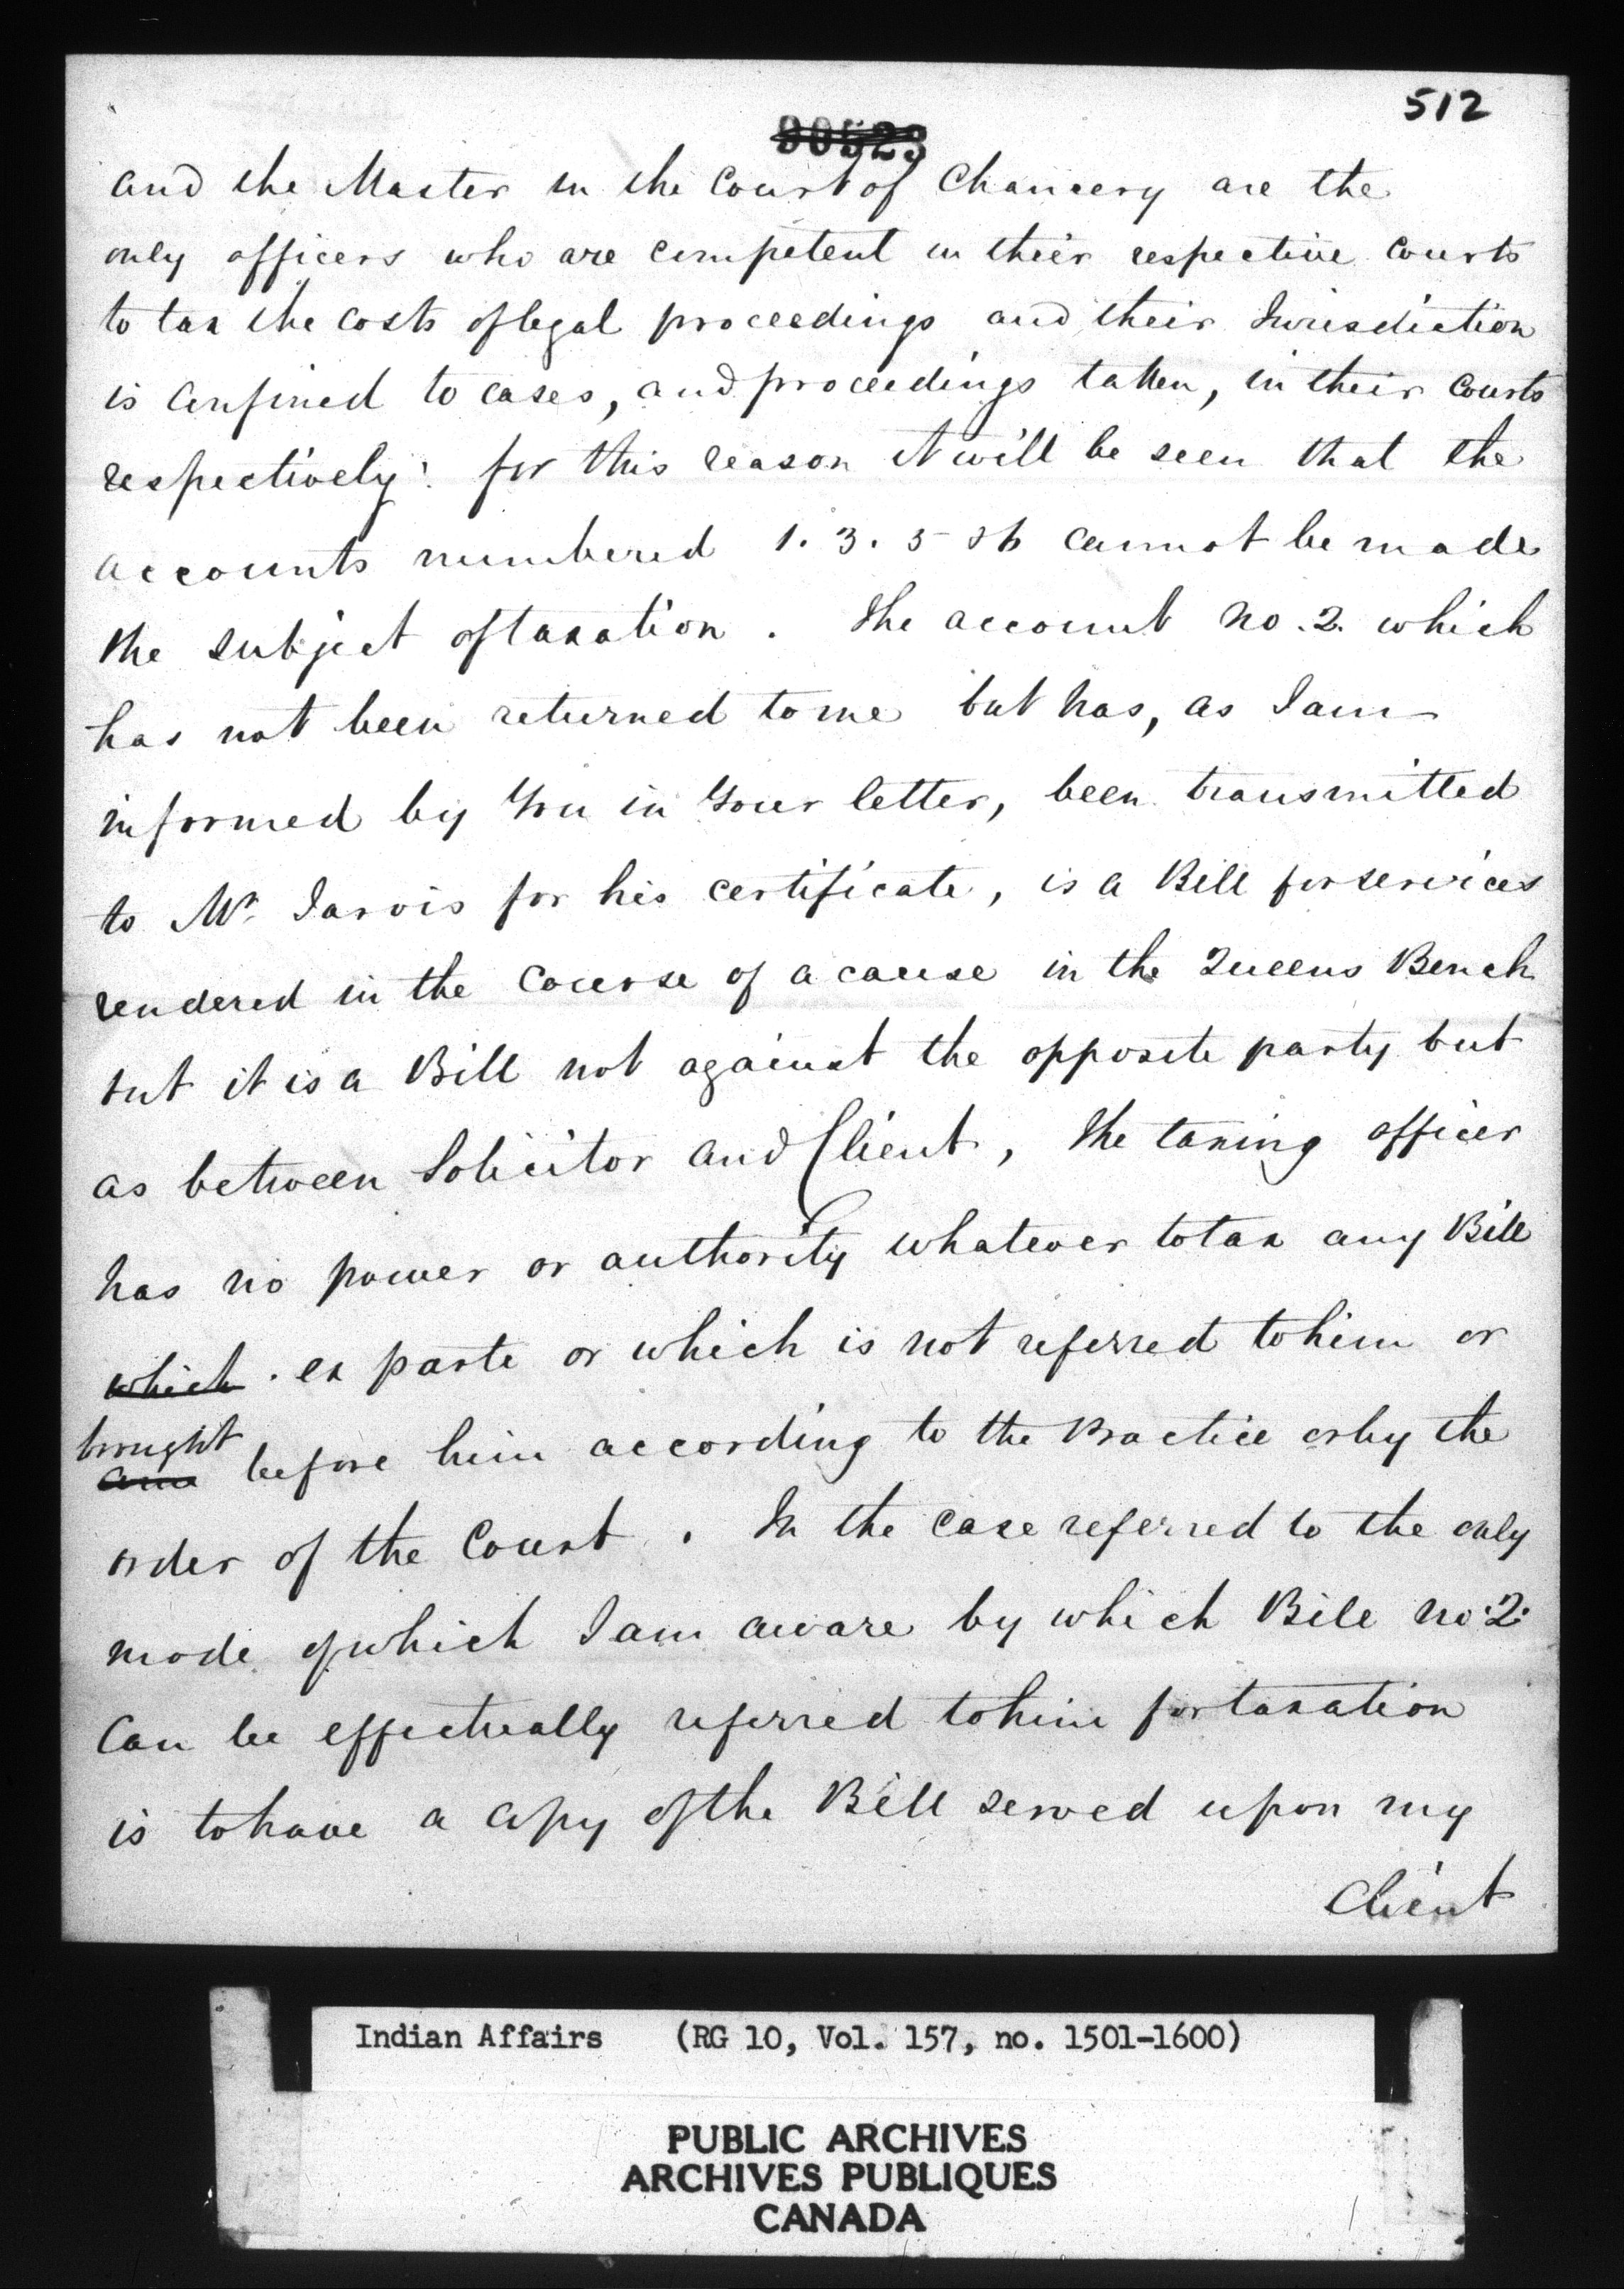 512
90523
and the Master in the Court of Chancery are the
only officers who are competent in their respective Courts
to tax the costs of legal proceedings and their Jurisdiction
is confined to cases, and proceedings taken, in their Courts
respectively: for this reason it will be seen that the
accounts numbered 1. 3. 5 & 6 cannot be made
the subject of taxation. The account No. 2. which
has not been returned to me but has, as I am
informed by You in Your letter, been transmitted
to Mr. Jarvis for his certificate, is a Bill for services
rendered in the Course of a cause in the Queens Bench
but it is a Bill not against the opposite party but
as between Solicitor and Client, the taxing officer
has no power or authority whatever to tax any Bill
which . ex parte or which is not referred to him or
brought
before him according to the Practice or by the
order of the Court. In the case referred to the only
mode of which I am aware by which Bill No. 2.
Can be effectually referred to him for taxation
is to have a Copy of the Bill served upon my
Client
Indian Affairs (RG 10, Vol. 157, no. 1501-1600)
PUBLIC ARCHIVES
ARCHIVES PUBLIQUES
CANADA